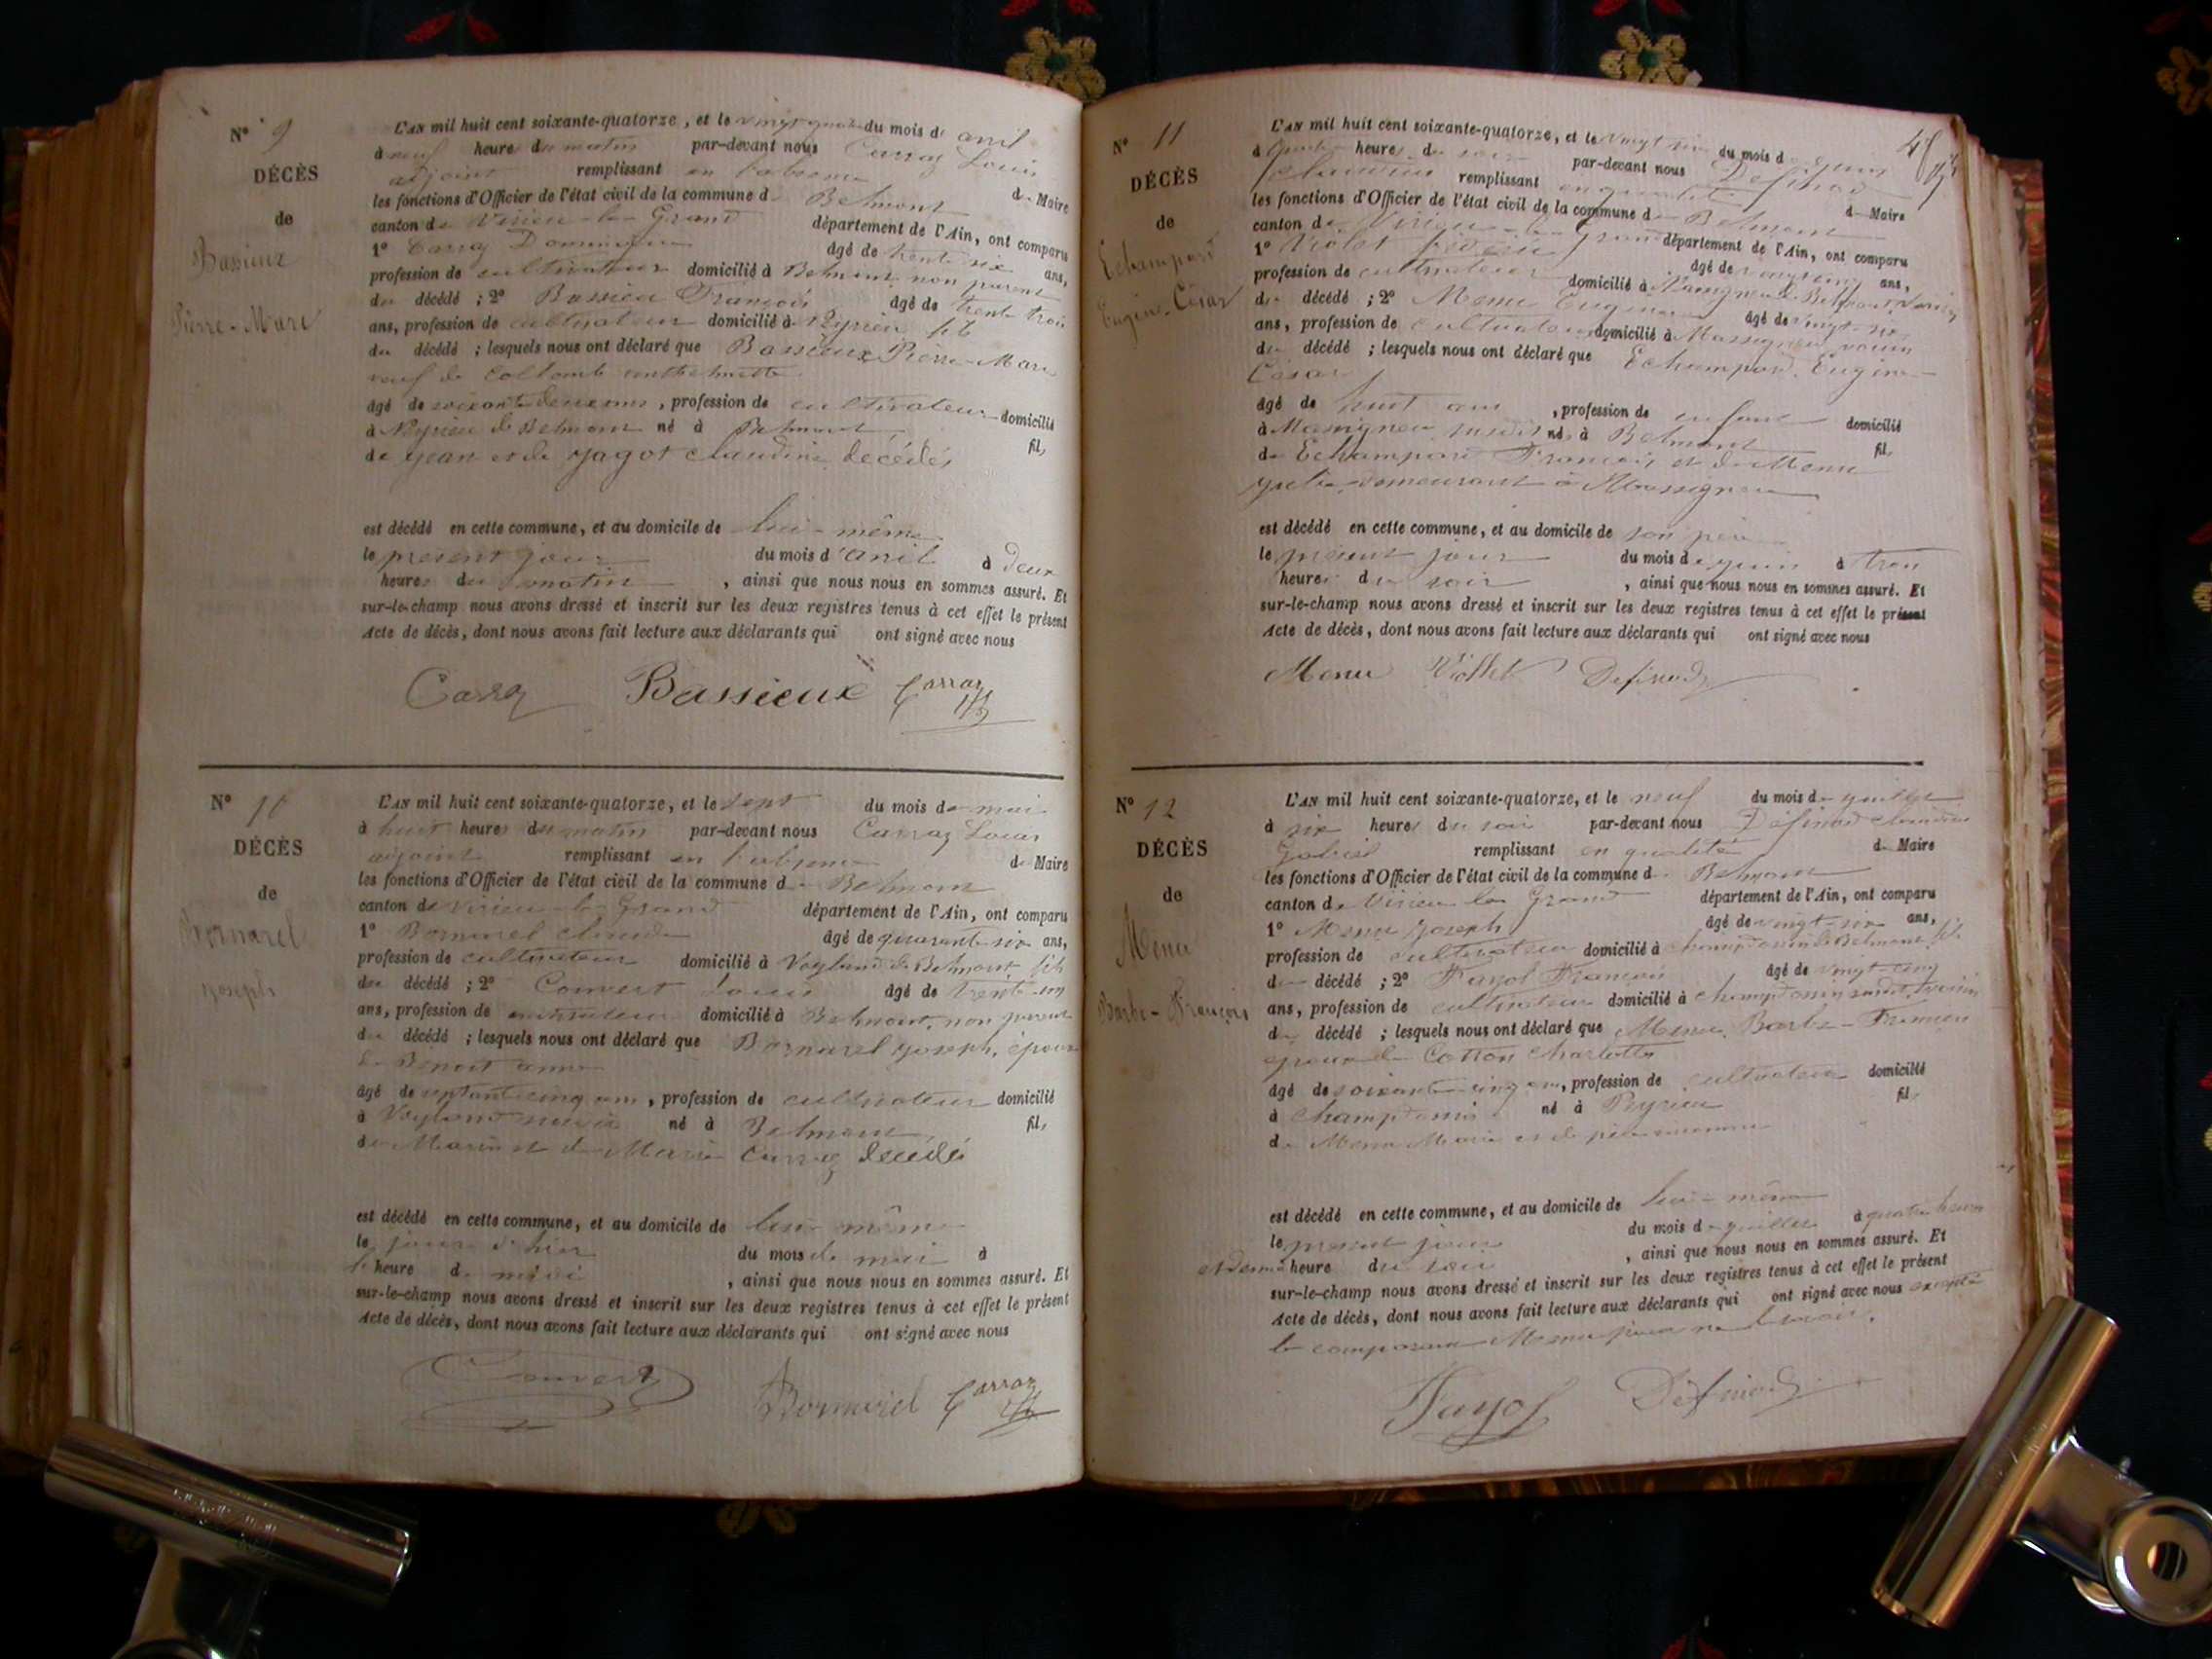 N° 9
DÉCÈS
de
Bassieux
Pierre-Marc
L'AN mil huit cent soixante-quatorze, et le vingt quatre du mois d'avril
à neuf heures du matin par-devant nous Carraz Louis
adjoint remplissant en l'absence du Maire
les fonctions d'Officier de l'état civil de la commune de Belmont
canton de Virieu-le-Grand département de l'Ain, ont comparu
1° Carraz âgé de trente six ans,
profession de cultivateur domicilié à Belmont non parent
du décédé ; 2° Bassieu François âgé de trente trois
ans, profession de cultivateur domicilié à fils
du décédé ; lesquels nous ont déclaré que Bassieux Pierre-Marc
veuf de
âgé de soixante deux ans, profession de cultivateur domicilié
à de Belmont né à Belmont fils
de Jean et de Jagot Claudine décédés
est décédé en cette commune, et au domicile de lui-même
le présent jour du mois d'avril à deux
heures du matin, ainsi que nous nous en sommes assuré. Et
sur-le-champ nous avons dressé et inscrit sur les deux registres tenus à cet effet le présent
Acte de décès, dont nous avons fait lecture aux déclarants qui ont signé avec nous
Carraz Bassieux Carraz
N° 10
DÉCÈS
de
Bornarel
Joseph
L'AN mil huit cent soixante-quatorze, et le sept du mois de mai
à huit heures du matin par-devant nous Carraz Louis
adjoint remplissant en l'absence du Maire
les fonctions d'Officier de l'état civil de la commune de Belmont
canton de Virieu-le-Grand département de l'Ain, ont comparu
1° Bornarel Claude âgé de quarante-six ans,
profession de cultivateur domicilié à Voyland de Belmont, fils
du décédé ; 2° Convert Louis âgé de trente-un
ans, profession de instituteur domicilié à Belmont, non parent
du décédé ; lesquels nous ont déclaré que Bornarel Joseph, époux
de Benoit anne
âgé de septante cinq ans, profession de cultivateur domicilié
à Voyland né à Belmont fils
de et de Marie Carraz décédés
est décédé en cette commune, et au domicile de lui-même
le jour d'hier du mois de mai à
heure de midi, ainsi que nous nous en sommes assuré. Et
sur-le-champ nous avons dressé et inscrit sur les deux registres tenus à cet effet le présent
Acte de décès, dont nous avons fait lecture aux déclarants qui ont signé avec nous
Convert Bornarel Carraz
48
N° 11
DÉCÈS
de
Echampard
Eugène-César
L'AN mil huit cent soixante-quatorze, et le vingt six du mois de juin
à quatre heures du soir par-devant nous Définod
Claudius remplissant en qualité de Maire
les fonctions d'Officier de l'état civil de la commune de Belmont
canton de Virieu-le-Grand département de l'Ain, ont comparu
1° Violet âgé de vingt cinq ans,
profession de cultivateur domicilié à Massigneu de Belmont, voisin
du décédé ; 2° Menu Eugène âgé de vingt-six
ans, profession de cultivateur domicilié à Massigneu voisin
du décédé ; lesquels nous ont déclaré que Echampard Eugène
César
âgé de huit ans, profession de enfant domicilié
à Massigneu susdit né à Belmont fils
de Echampard François et de Menu
Julie demeurant à Massigneu
est décédé en cette commune, et au domicile de son père
le présent jour du mois de juin à trois
heures du soir, ainsi que nous nous en sommes assuré. Et
sur-le-champ nous avons dressé et inscrit sur les deux registres tenus à cet effet le présent
Acte de décès, dont nous avons fait lecture aux déclarants qui ont signé avec nous
Menu Viollet Définod
N° 12
DÉCÈS
de
Menu
Barbe-François
L'AN mil huit cent soixante-quatorze, et le neuf du mois de juillet
à six heures du soir par-devant nous Définod Claudius
Gabriel remplissant en qualité de Maire
les fonctions d'Officier de l'état civil de la commune de Belmont
canton de Virieu le Grand département de l'Ain, ont comparu
1° Menu Joseph âgé de vingt six ans,
profession de cultivateur domicilié à de Belmont fils
du décédé ; 2° Fayol François âgé de vingt-cinq
ans, profession de cultivateur domicilié à susdit, voisin
du décédé ; lesquels nous ont déclaré que Menu Barbe-François
époux de Cotton Charlotte
âgé de soixante-cinq ans, profession de cultivateur domicilié
à né à Peyrieu fils
de Menu Marie et de père inconnu
est décédé en cette commune, et au domicile de lui-même
le présent jour du mois de juillet à quatre heures
et demie heure du soir, ainsi que nous nous en sommes assuré. Et
sur-le-champ nous avons dressé et inscrit sur les deux registres tenus à cet effet le présent
Acte de décès, dont nous avons fait lecture aux déclarants qui ont signé avec nous excepté
le comparant Menu pour ne le savoir.
Fayol Définod